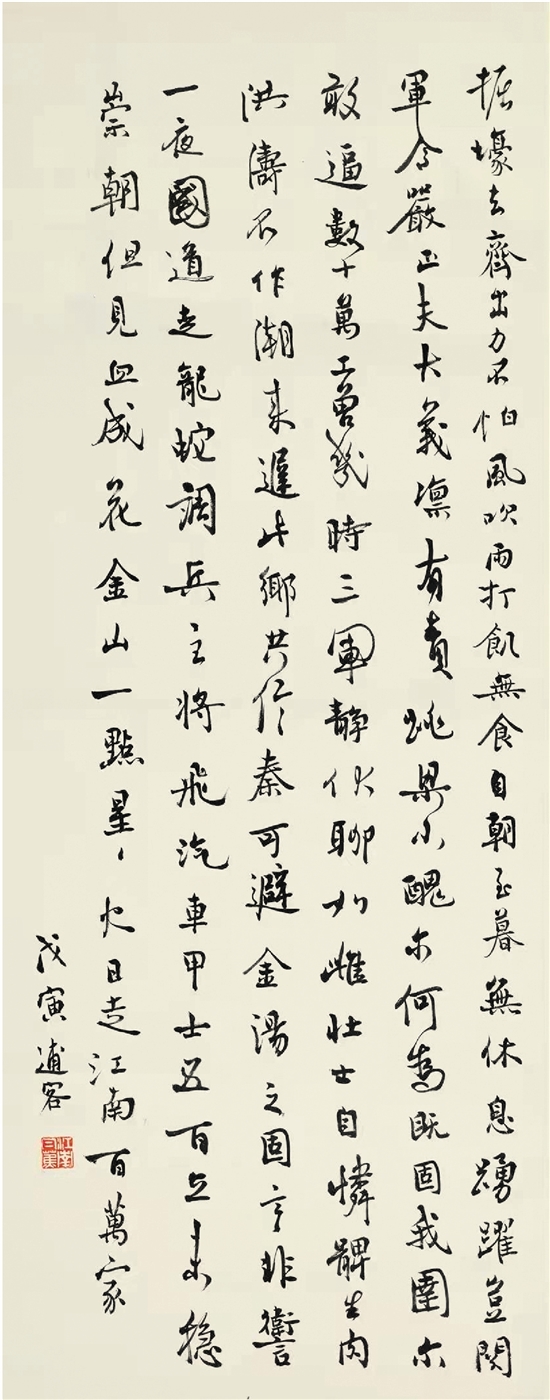 掘壕去齊出力不怕風吹雨打飢無食自朝至暮無休息踴躍豈関
軍令嚴正夫大義凛有責跳梁小醜尔何為既固我圉尔
敢逼數十萬工曾幾時三軍静伏聊如雌壮士自憐髀生肉
洪濤不作潮来遲此鄉共信秦可避金湯之固言非讆
一夜國道走龍蛇調兵主將飛汽車甲士五百立未穩
崇朝但見血成花金山一點星々火日走江南百萬家
戊寅逋客
江南